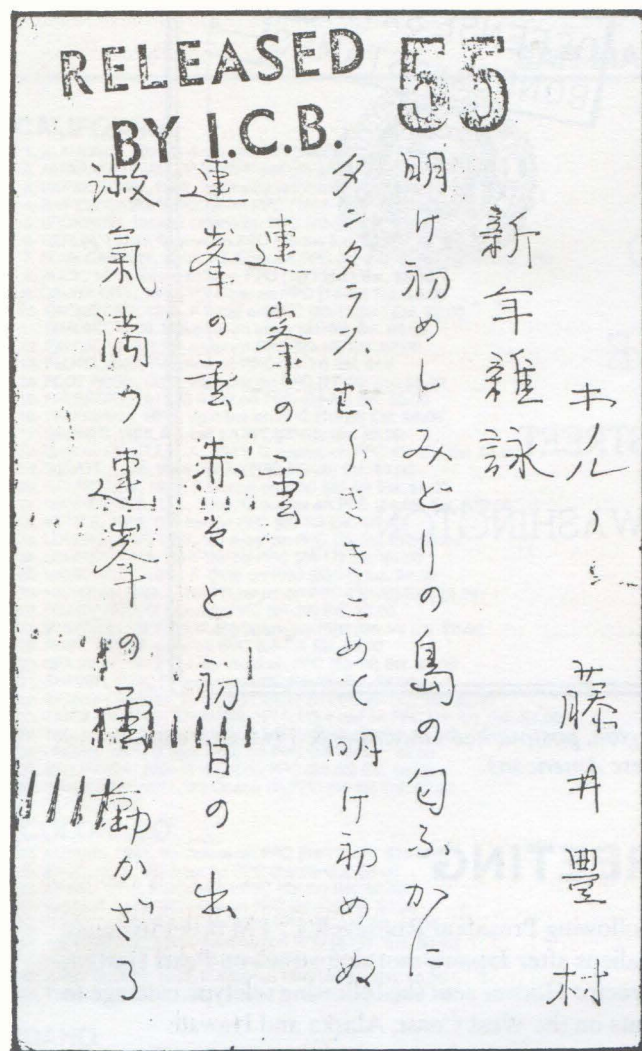 RELEASED 55
BY I.C.B.
藤井豊村
新年雑詠
明け初めしみとりの島の匂ふかに
タンタラスむらさきこめて明け初めぬ
連峯の雲
連峯の雲赤々と初日の出
淑氣満つ連峯の雲動かざる